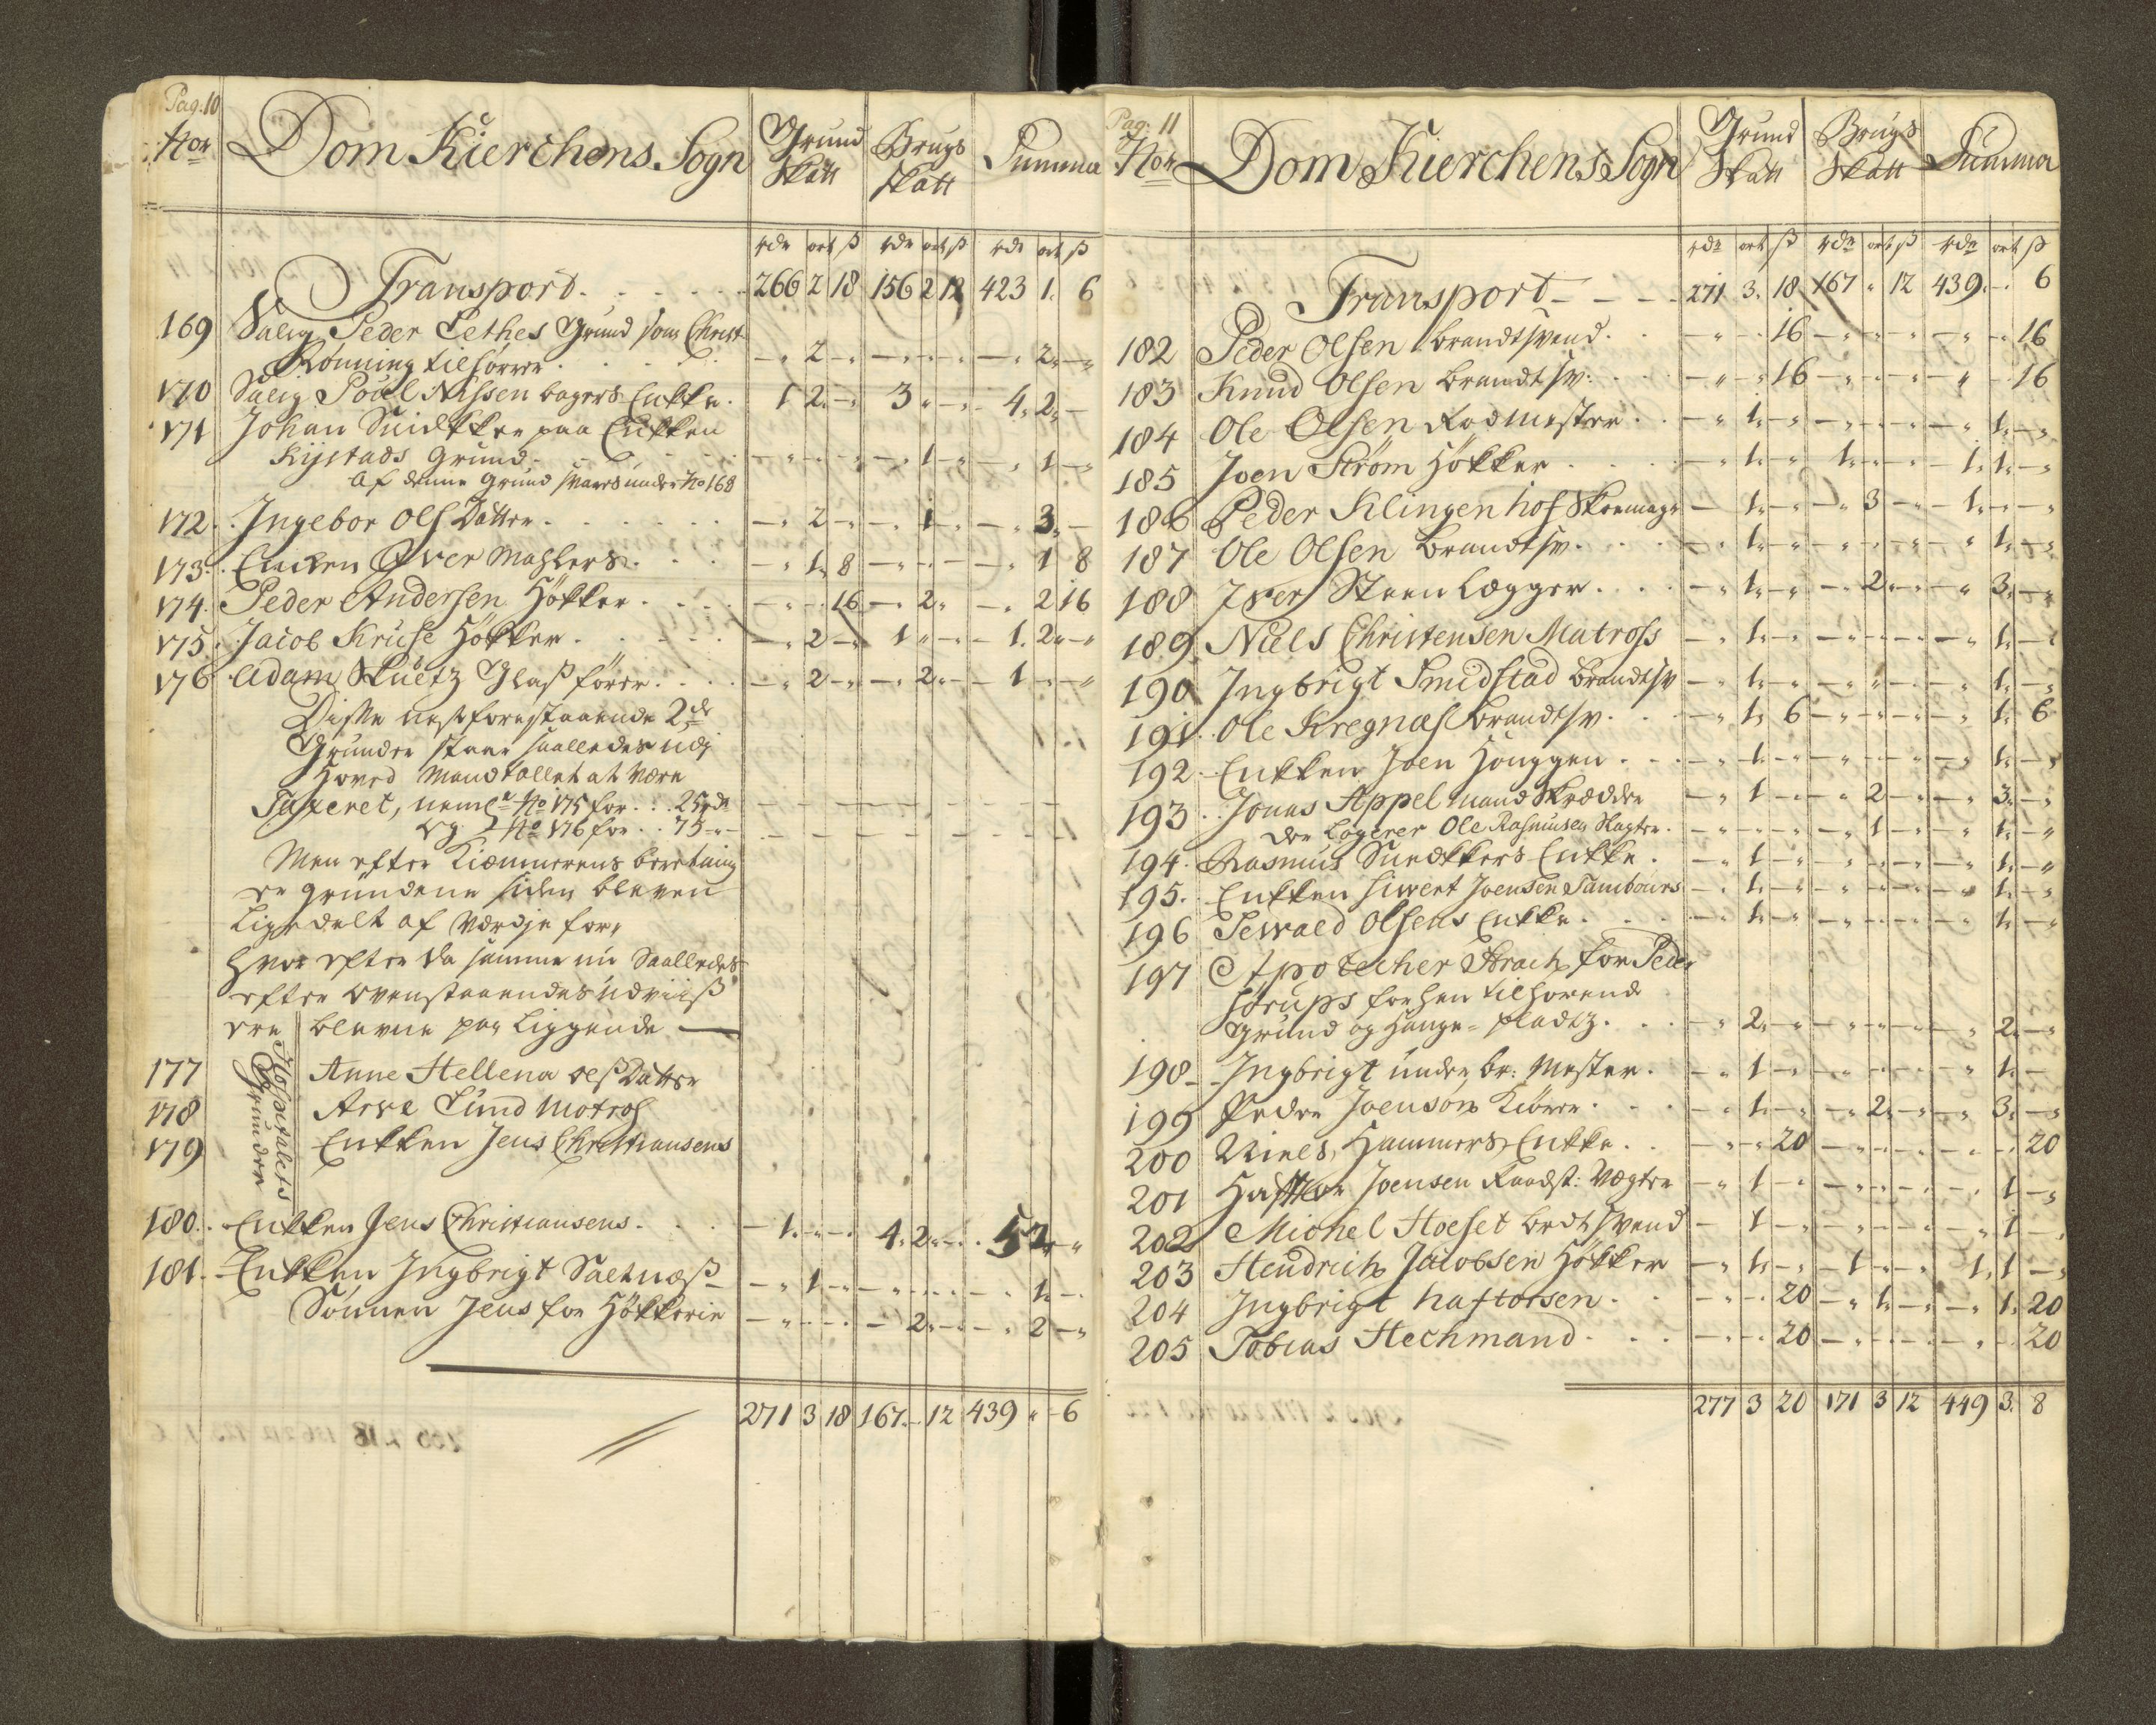 Pag: 10
Nor Dom Kierchens Sogn Grund Skatt Brugs Skatt Summa
rdr ort ß rdr ort ß rdr ort ß
Transport 266 2 18 156 2 12 423 1 6
169 Salig Peder Lethes Grund som Christ
Rønning tilhører - " 2 - " - " - " - " - " 2 - "
170 Salig Povel Nissen bagers Encke 1 2 - " 3 " - " 4 2 -
171 Johan Snidkker paa Enkken
Kijstads Grund - " - " - " - " 1 - " - " 1 - "
Af denne Grund svares under No 168
172 Ingebor Ols Datter - " 2 - " - " 1 - " - " 3 -
173 Encken Iver Mahlers - " 1 8 - " - " - " - " 1 8
174 Peder Andersen Høkker - " - " 16 - " 2 " - " 2 16
175 Jacob Kruse Høkker - " 2 - " 1 " - " 1 2 - "
176 Adam Skuetz Glass fører - " 2 - " - " 2 - " 1 - " - "
Disse nest forestaaende 2de
Grunder staar saaledes udj
Hoved Mandtallet at være
Taxeret, neml: No 175 for 25 rdr
og No 176 for 75 - " -
Men efter Kiemnerens beretning
er grundene siden bleven
Ligedelt af Værdje for,
hvor efter da samme nu Saaledes
efter ovenstaaendes udviis
ere blevne paa Liggende
Hospitalets Grunder
177 Anne Hellena Ols Datter
178 Arve Lund Matros
179 Enkken Jens Christiansens
180 Enkken Jens Christiansens - 1 - " - " 4 2 - " 5 2 - "
181 Enkken Ingbrigt Saetnæs - " 1 - " - " - " - " - " 1 - "
Sønnen Jens for Høkkerie - " - " - " - " 2 - " - " 2 - "
271 3 18 167 - 12 439 " 6
Pag: 11
Nor Dom Kierchens Sogn Grund Skatt Brugs Skatt Summa
rdr ort ß rdr ort ß rdr ort ß
Transport 271 3 18 167 " 12 439 - 6
182 Peder Olsen brandtsvend - " - 16 - " - " - " - " - 16
183 Knud Olsen brandtsv: - " - " 16 - " - " - " - " - 16
184 Ole Olsen Rodmester - " 1 - " - " - " - " - " 1 - "
185 Joen Strøm Høkker - " 1 - " 1 - " - " 1 1 - "
186 Peder Klingenhof Skoemager - 1 - " - " 3 - " 1 - " - "
187 Ole Olsen brandtsv. - " 1 - " - " - " - " - " 1 - "
188 Iver Steenlægger - " 1 - " - " 2 - " - " 3 - "
189 Niels Christensen Matross - " 1 - " - " - " - " - " 1 - "
190 Ingbrigt Smidstad brandtsv - " 1 - " - " - " - " - " 1 - "
191 Ole Kregnæs brandtsv. - " 1 6 - " - " - " - " 1 6
192 Enkken Joen Hounggen - " 1 - " - " - " - " - " 1 - "
193 Jonas Appelmand Skrædder - " 1 - " - " 2 - " - " 3 - "
der Logerer Ole Rasmusen Slagter - " - " - " - " 1 - " - " 1 - "
194 Rasmus Snedkkers Enkke - " 1 - " - " - " - " - " 1 - "
195 Enkken Siwert Joensen Tambours - " 1 - " - " - " - " - " 1 - "
196 Sewald Olsens Enkke - " 1 - " - " - " - " - " 1 - "
197 Apotecher Strach for Peder
Sørups forhen tilhørende
Grund og Hauge-pladtz - " 2 - " - " - " - " - " 2 - "
198 Ingbrigt under br: Mester - " 1 - " - " - " - " - " 1 -
199 Peder Joenson Kiører - " 1 - " - " 2 - " - " 3 - "
200 Niels Hammers Enkke - " - " 20 - " - " - " - " - 20
201 Haftor Joensen Raadst: Vægter - " 1 - " - " - " - " - " 1 - "
202 Michel Hoeset brdtsvend - 1 - " - " - " - " - " 1 - "
203 Hendrich Jacobsen Høkker - " 1 - " - 1 - " - " 1 1 - "
204 Ingbrigt Haftorsen - " - " 20 - " 1 - " - " 1 20
205 Tobias Hechmand - " - " 20 - " - " - " - " - 20
277 3 20 171 3 12 449 3 8